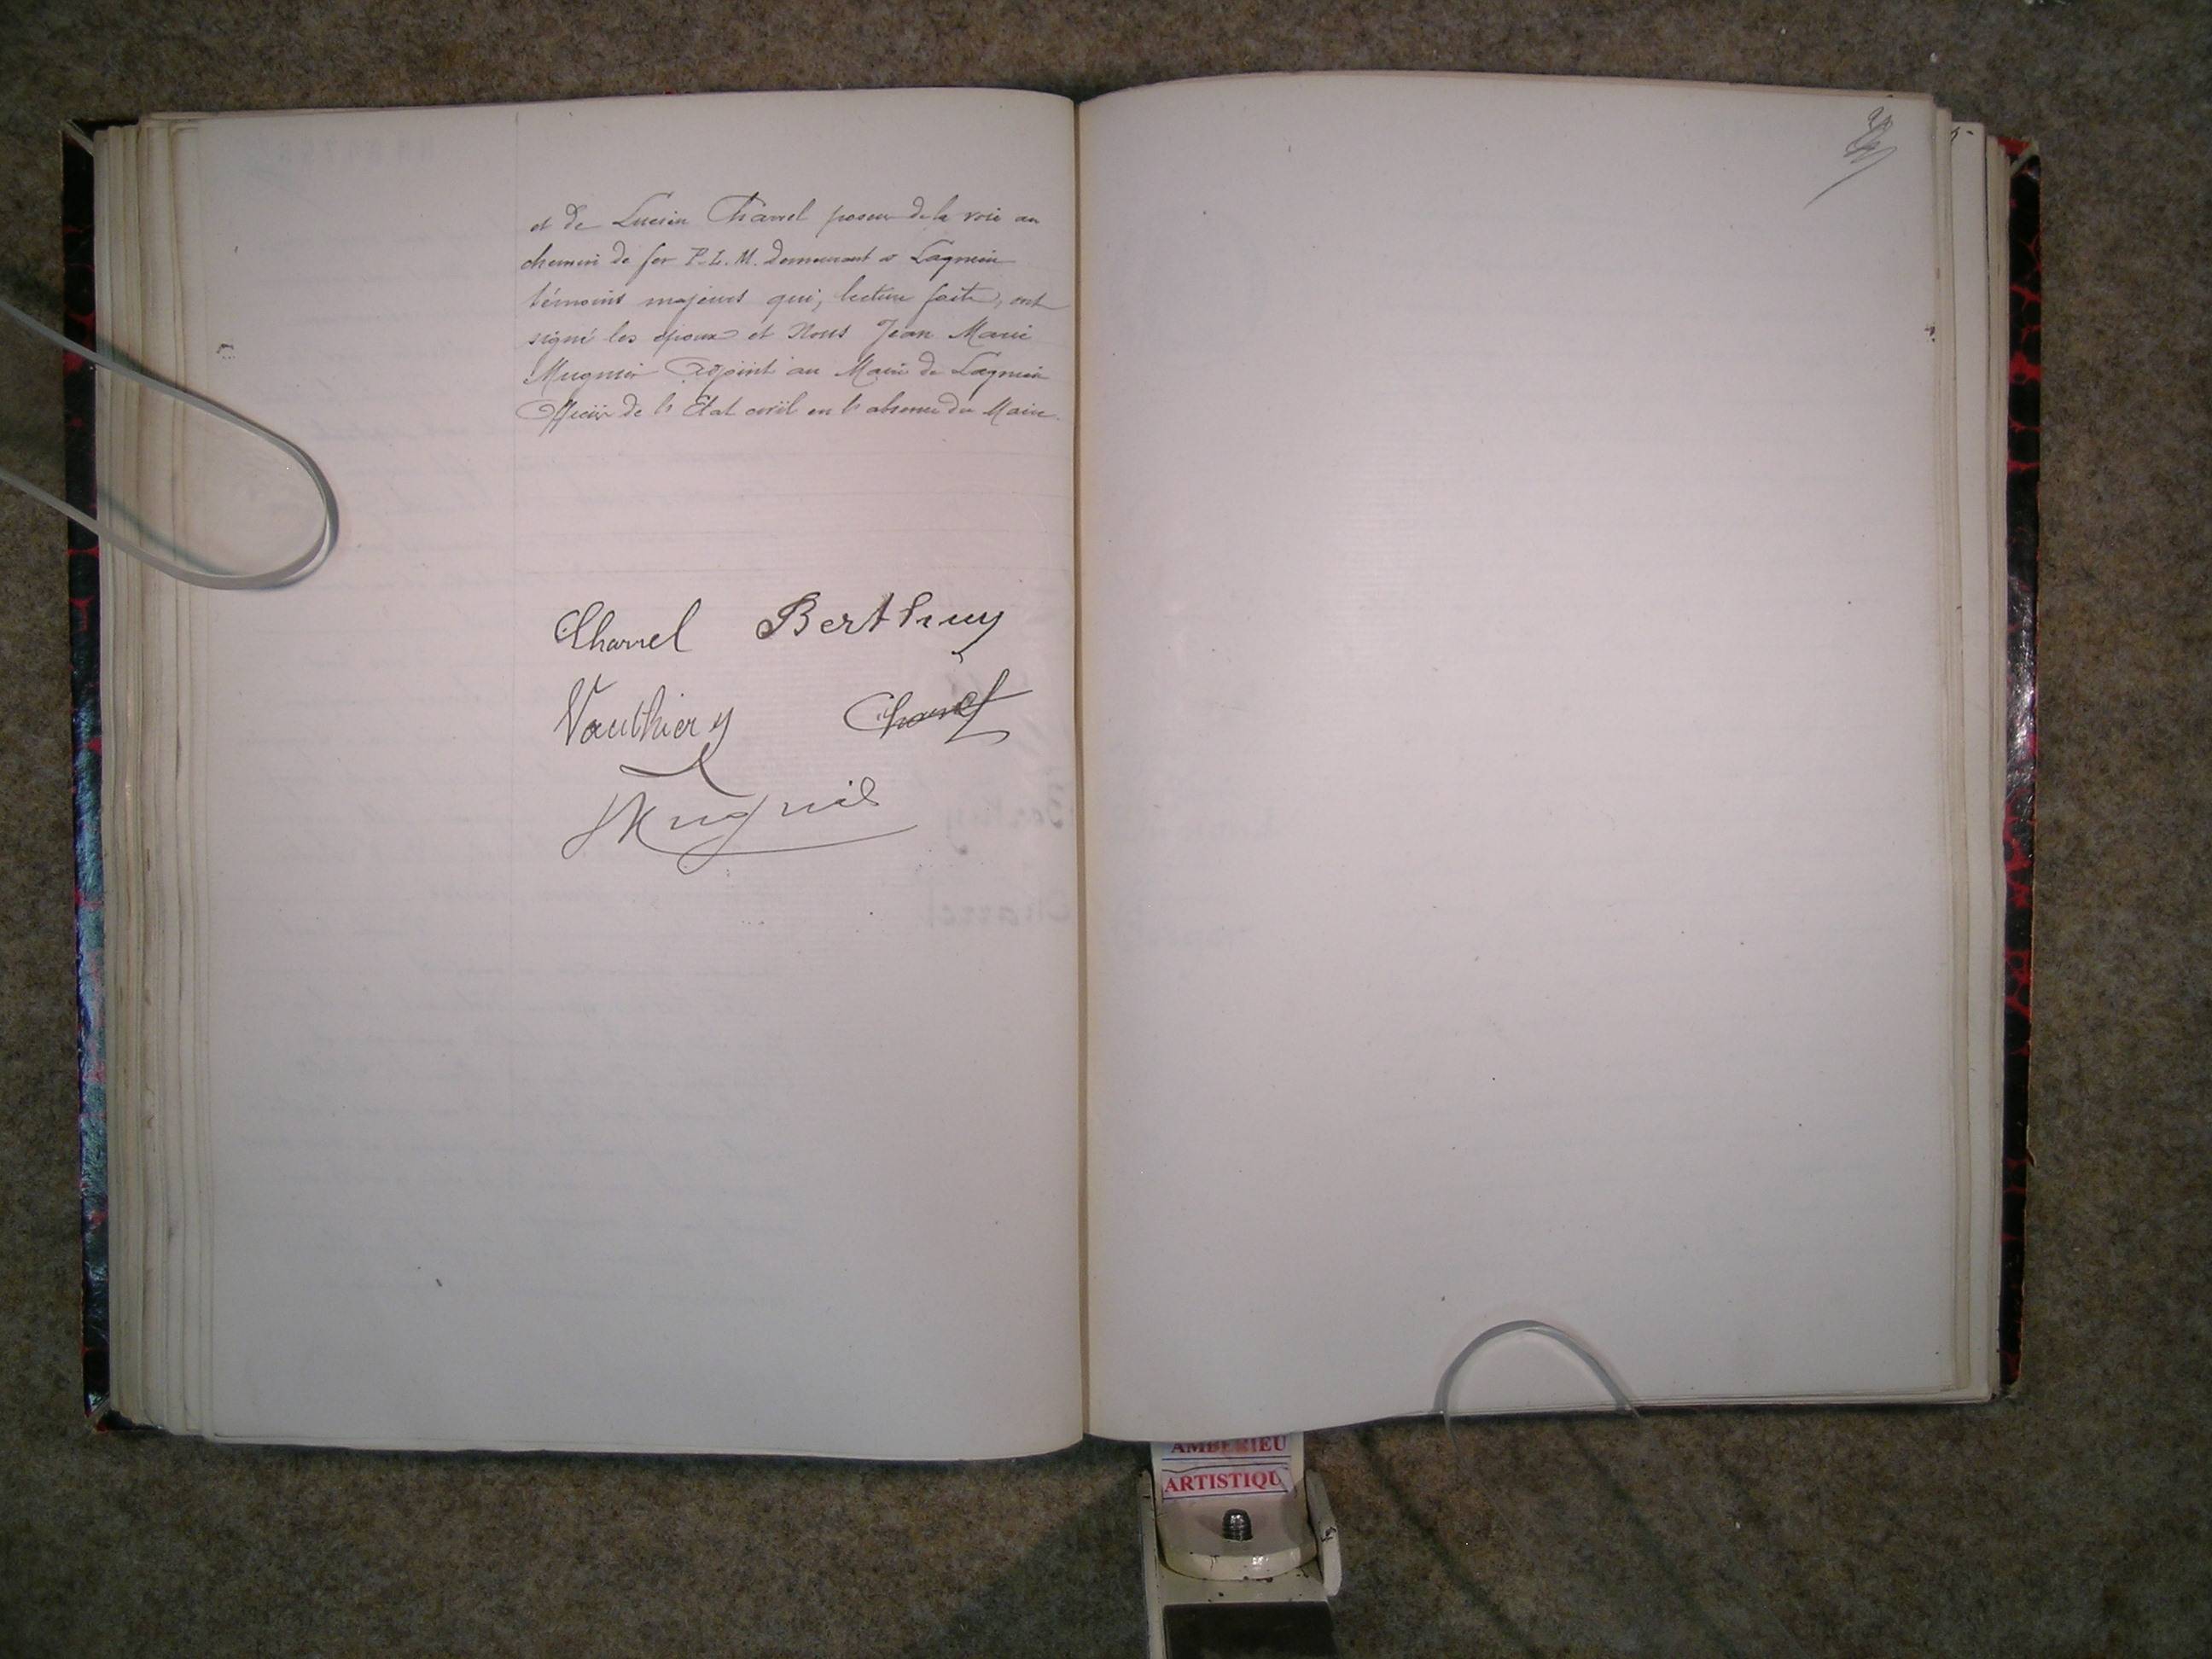 et de Lucien Charvel poseur de la voie au
chemin de fer P.L.M. demeurant à Lagnieu
témoins majeurs qui, lecture faite, ont
signé les époux et Nous Jean Marie
Mugnier Adjoint au Maire de Lagnieu
Officier de l'Etat civil en l'absence du Maire.
Charvel Berthuy
Vauthier y Charvel
Mugnier
AMBERIEU
ARTISTIQU